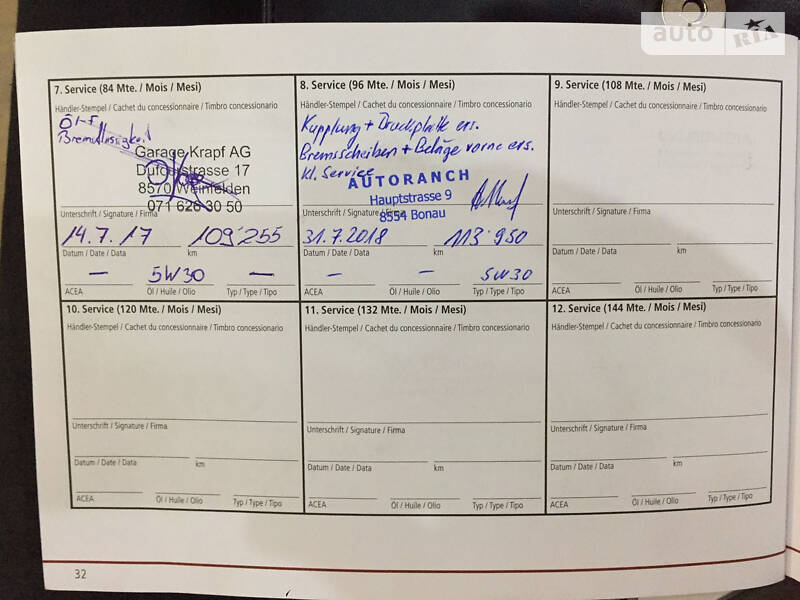 auto RIA
7. Service (84 Mte. / Mois / Mesi)
Händler-Stempel / Cachet du concessionnaire / Timbro concessionario
Öl+F
Bremsflüssigkeit
Garage Krapf AG
Dufourstrasse 17
8570 Weinfelden
071 626 30 50
Unterschrift / Signature / Firma
14.7.17 109'255
Datum / Date / Data km
— 5W30 —
ACEA Öl / Huile / Olio Typ / Type / Tipo
8. Service (96 Mte. / Mois / Mesi)
Händler-Stempel / Cachet du concessionnaire / Timbro concessionario
Kupplung + Druckplatte ers.
Bremsscheiben + Beläge vorne ers.
Kl. Service
AUTORANCH
Hauptstrasse 9
8554 Bonau
Unterschrift / Signature / Firma
31.7.2018 113'950
Datum / Date / Data km
— — 5W30
ACEA Öl / Huile / Olio Typ / Type / Tipo
9. Service (108 Mte. / Mois / Mesi)
Händler-Stempel / Cachet du concessionnaire / Timbro concessionario
Unterschrift / Signature / Firma
Datum / Date / Data km
ACEA Öl / Huile / Olio Typ / Type / Tipo
10. Service (120 Mte. / Mois / Mesi)
Händler-Stempel / Cachet du concessionnaire / Timbro concessionario
Unterschrift / Signature / Firma
Datum / Date / Data km
ACEA Öl / Huile / Olio Typ / Type / Tipo
11. Service (132 Mte. / Mois / Mesi)
Händler-Stempel / Cachet du concessionnaire / Timbro concessionario
Unterschrift / Signature / Firma
Datum / Date / Data km
ACEA Öl / Huile / Olio Typ / Type / Tipo
12. Service (144 Mte. / Mois / Mesi)
Händler-Stempel / Cachet du concessionnaire / Timbro concessionario
Unterschrift / Signature / Firma
Datum / Date / Data km
ACEA Öl / Huile / Olio Typ / Type / Tipo
32